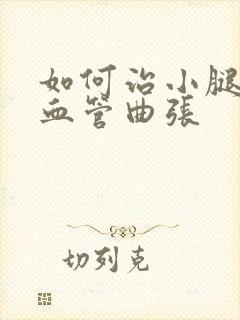 如何治小腿
血管曲張
切列克